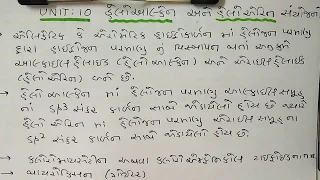 UNIT:10 હેલોઆલ્કેન અને હેલોએરિન સંયોજનો
→ એલિફેટિક કે એરોમેટિક હાઈડ્રોકાર્બન માં હાઈડ્રોજન પરમાણુ
દ્વારા હાઈડ્રોજન પરમાણુ નું વિસ્થાપન થતાં અનુક્રમે
આલ્કાઈલ હેલાઈડ (હેલોઆલ્કેન) અને એરાઈલ હેલાઈડ
(હેલોએરિન) બને છે.
→ હેલોઆલ્કેન માં હેલોજન પરમાણુ આલ્કાઈલ સમૂહ
નાં sp3 સંકર કાર્બન સાથે જોડાયેલો હોય છે જ્યારે
હેલોએરિન માં હેલોજન પરમાણુ એરાઈલ સમૂહ ના
sp2 સંકર કાર્બન સાથે જોડાયેલો હોય છે.
→ ક્લોરોમાયસેટીન અથવા ક્લોરોએમ્ફેનિકોલ
→ થાયરોક્સિન